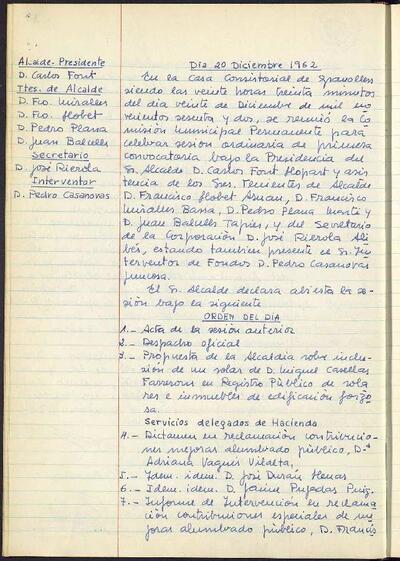 Alcalde-Presidente
D. Carlos Font
Ttes. de Alcalde
D. Fco. Miralles
D. Fco. Llobet
D. Pedro Plana
D. Juan Balcells
Secretario
D. José Rierola
Interventor
D. Pedro Casanovas
Día 20 Diciembre 1962
En la Casa Consistorial de Granollers
siendo las veinte horas treinta minutos
del dia veinte de Diciembre de mil no-
vecientos sesenta y dos, se reunió la Co-
misión Municipal Permanente para
celebrar sesión ordinaria de primera
convocatoria bajo la Presidencia del
Sr. Alcalde D. Carlos Font Llopart y asis-
tencia de los Sres. Tenientes de Alcalde
D. Francisco Llobet Arnan, D. Francisco
Miralles Bassa, D. Pedro Plana y
D. Juan Balcells Tapies, y del Secretario
de la Corporación D. José Rierola Ali-
bés, estando tambien presente el Sr. In-
terventor de Fondos D. Pedro Casanovas
El Sr. Alcalde declara abierta la se-
sión bajo la siguiente
ORDEN DEL DIA
1.- Acta de la sesión anterior
2.- Despacho oficial
3.- Propuesta de la Alcaldia sobre inclu-
sión de un solar de D. Miguel Casellas
en Registro Público de sola-
res e inmuebles de edificación forzo-
sa.
Servicios delegados de Hacienda
4.- Dictamen en reclamación contribucio-
nes mejoras alumbrado público, D.ª
Adriana Vaqués Vilalta.
5.- Idem. idem. D. José Durán
6.- Idem. idem. D. Jaime Pujadas Puig.
7.- Informe de Intervención en reclama-
ción contribuciones especiales de me-
joras alumbrado público, D. Francis-